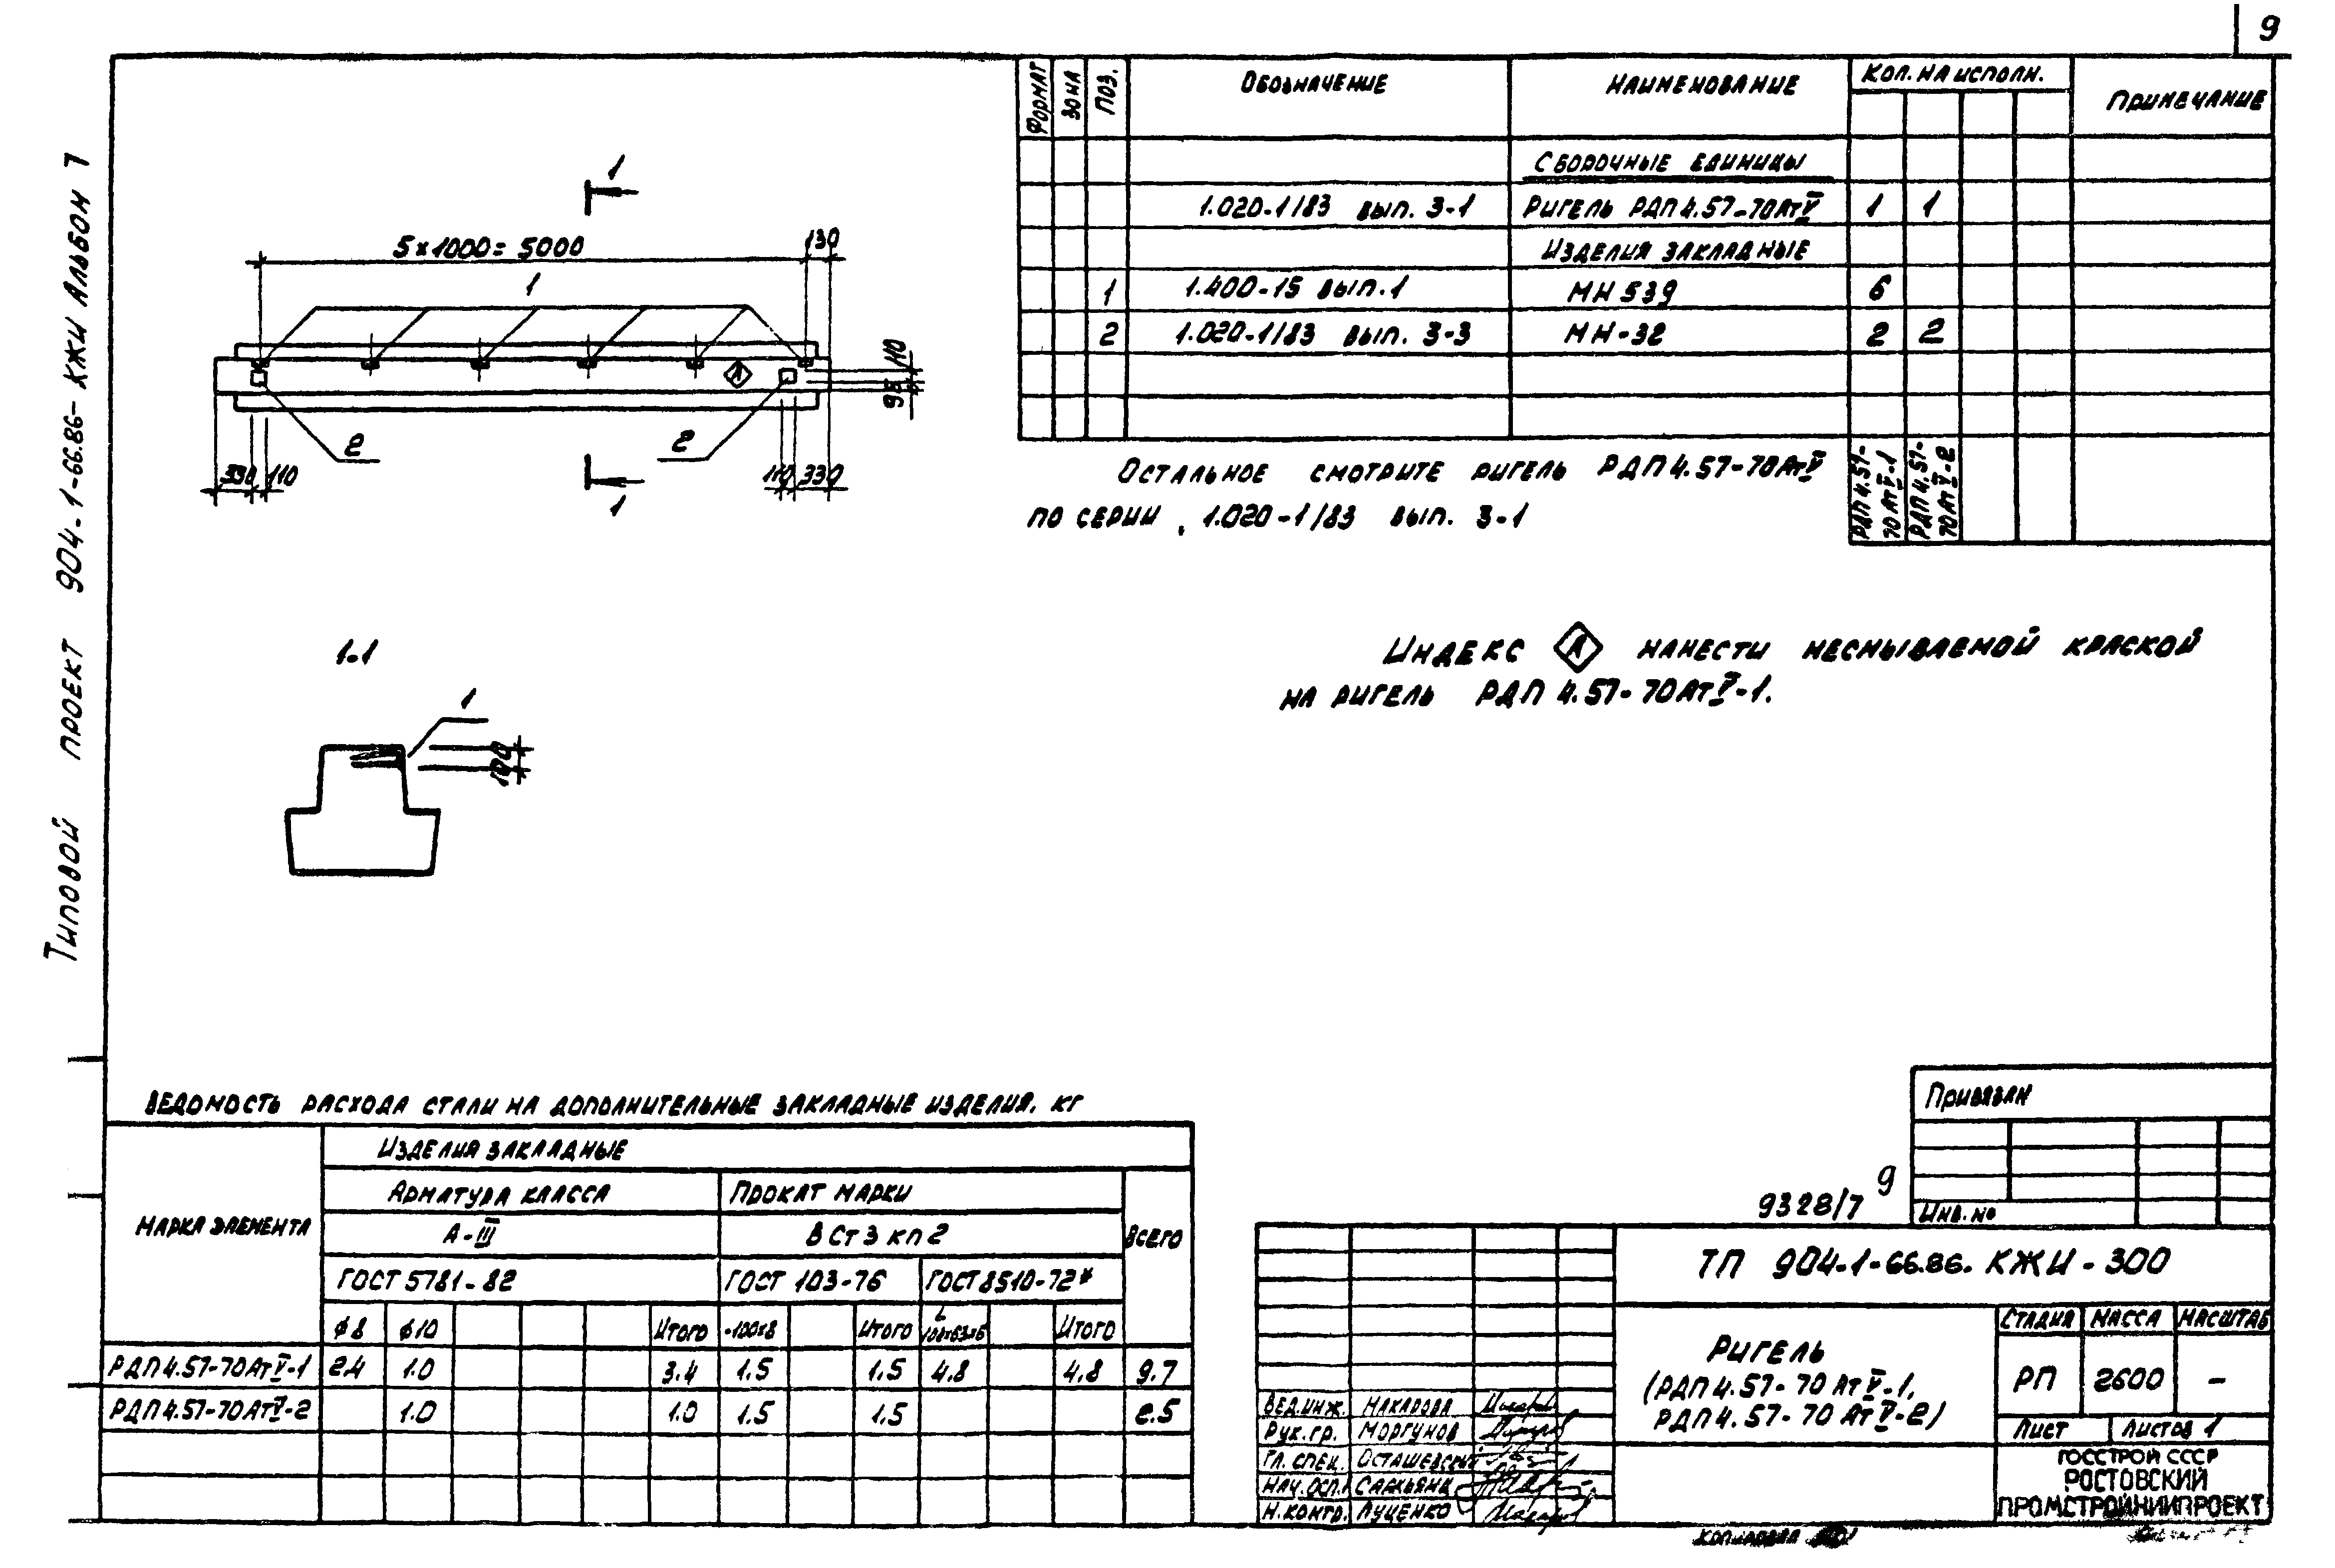 9
Типовой проект 904-1-66.86-КЖИ Альбом 7
1
5×1000=5000
130
1
110
95
А
2
2
330
110
110
330
1
1-1
1
100
Формат
Зона
Поз.
Обозначение
Наименование
Кол. на исполн.
Примечание
Сборочные единицы
1.020-1/83 вып. 3-1 Ригель РДП4.57-70АтV 1 1
Изделия закладные
1 1.400-15 вып.1 МН539 6
2 1.020-1/83 вып. 3-3 МН-32 2 2
РДП4.57-70АтV-1
РДП4.57-70АтV-2
Остальное смотрите ригель РДП4.57-70АтV
по серии 1.020-1/83 вып. 3-1
Индекс А нанести несмываемой краской
на ригель РДП4.57-70АтV-1.
Ведомость расхода стали на дополнительные закладные изделия, кг
Марка элемента
Изделия закладные
Арматура класса Прокат марки
Всего
А-III ВСт3кп2
ГОСТ 5781-82 ГОСТ 103-76 ГОСТ 8510-72*
ø8 ø10 Итого -100×8 Итого L 100×63×6 Итого
РДП4.57-70АтV-1 2.4 1.0 3.4 1.5 1.5 4.8 4.8 9.7
РДП4.57-70АтV-2 1.0 1.0 1.5 1.5 2.5
Привязан
Инв. №
9328/7 9
ТП 904-1-66.86.КЖИ-300
Ригель
(РДП4.57-70АтV-1,
РДП4.57-70АтV-2)
Стадия Масса Масштаб
РП 2600 -
Лист Листов 1
Вед.инж. Макарова
Рук.гр. Моргунов
Гл.спец. Осташевский
Нач.осп.1 Саркьянц
Н.контр. Луценко
ГОССТРОЙ СССР
РОСТОВСКИЙ
ПРОМСТРОЙНИИПРОЕКТ
Копировал